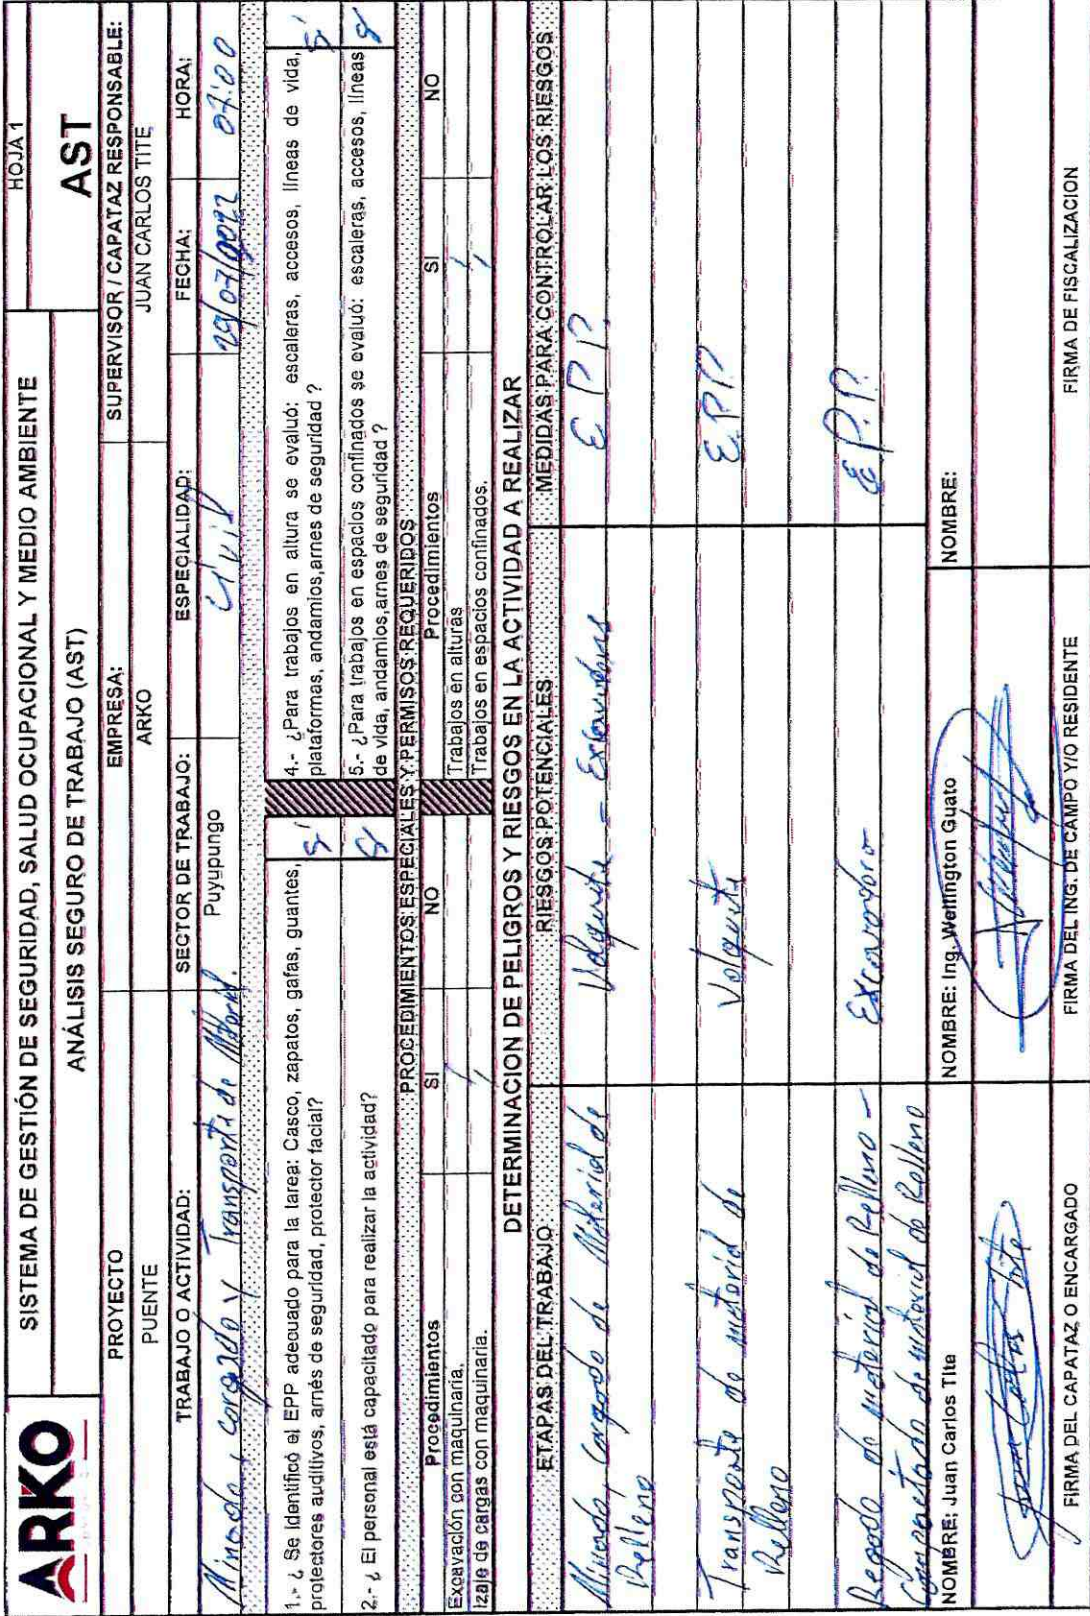 ARKO
SISTEMA DE GESTIÓN DE SEGURIDAD, SALUD OCUPACIONAL Y MEDIO AMBIENTE
HOJA 1
ANÁLISIS SEGURO DE TRABAJO (AST)
AST
PROYECTO
EMPRESA:
SUPERVISOR / CAPATAZ RESPONSABLE:
PUENTE
ARKO
JUAN CARLOS TITE
TRABAJO O ACTIVIDAD:
SECTOR DE TRABAJO:
ESPECIALIDAD:
FECHA:
HORA:
Minado, cargado y Transporte de Material.
Puyupungo
Civil
29/07/2022
07:00
1.- ¿ Se identificó el EPP adecuado para la tarea: Casco, zapatos, gafas, guantes,
protectores auditivos, arnés de seguridad, protector facial?
si
4.- ¿Para trabajos en altura se evaluó: escaleras, accesos, líneas de vida,
plataformas, andamios,arnes de seguridad ?
si
2.- ¿ El personal está capacitado para realizar la actividad?
si
5.- ¿Para trabajos en espacios confinados se evaluó: escaleras, accesos, líneas
de vida, andamios,arnes de seguridad ?
si
PROCEDIMIENTOS ESPECIALES Y PERMISOS REQUERIDOS
Procedimientos
SI
NO
Procedimientos
SI
NO
Excavación con maquinaria.
/
Trabajos en alturas
/
Izaje de cargas con maquinaria.
/
Trabajos en espacios confinados.
/
DETERMINACION DE PELIGROS Y RIESGOS EN LA ACTIVIDAD A REALIZAR
ETAPAS DEL TRABAJO
RIESGOS POTENCIALES
MEDIDAS PARA CONTROLAR LOS RIESGOS
Minado, Cargado de Material de
Relleno
Volquete - Excavadora
E P P.
Transporte de material de
Relleno
Volquete
E.P.P
Regado de material de Relleno -
Compactado de material de Relleno
Excavadora
E.P.P.
NOMBRE: Juan Carlos Tite
NOMBRE: Ing. Wellington Guato
NOMBRE:
Juan Carlos Tite
FIRMA DEL CAPATAZ O ENCARGADO
FIRMA DEL ING. DE CAMPO Y/O RESIDENTE
FIRMA DE FISCALIZACION